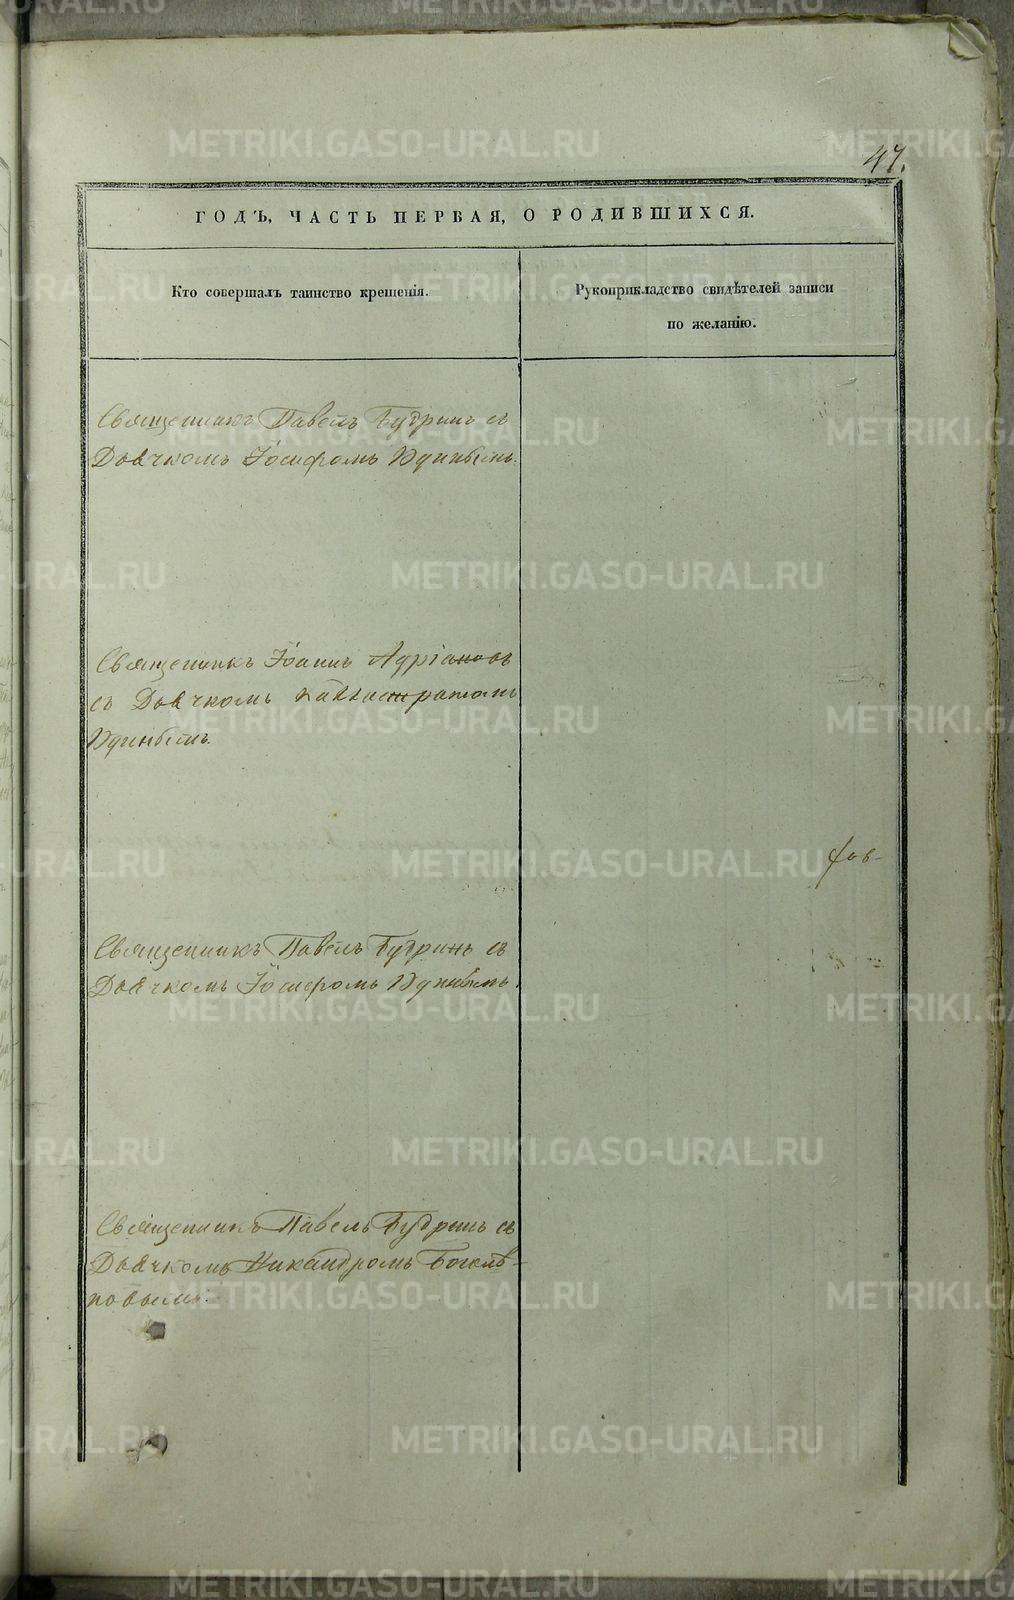 47.
ГОДЪ, ЧАСТЬ ПЕРВАЯ, О РОДИВШИХСЯ.
Кто совершалъ таинство крещенія.
Рукоприкладство свидѣтелей записи
по желанію.
Священникъ Павелъ Будринъ съ
Дьячкомъ Іосифомъ Удинымъ.
Священникъ Іоаннъ Адріановъ
съ Дьячкомъ Каллистратомъ
Удинымъ.
фов-
Священникъ Павелъ Будринъ съ
Дьячкомъ Іосифомъ Удинымъ.
Священникъ Павелъ Будринъ съ
Дьячкомъ Никандромъ Боголѣ-
повымъ.
METRIKI.GASO-URAL.RU